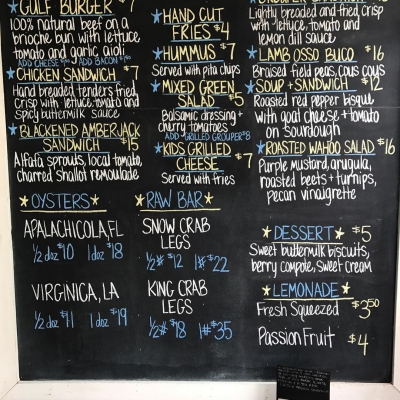 GULF BURGER $7
100% natural beef on a
brioche bun with lettuce
tomato and garlic aioli
ADD CHEESE ADD BACON
CHICKEN SANDWICH $7
Hand breaded tenders fried
Crisp with lettuce, tomato and
spicy buttermilk sauce
BLACKENED AMBERJACK
SANDWICH $15
Alfafa sprouts, local tomato,
charred shallot remoulade
HAND CUT
FRIES $4
HUMMUS $7
Served with pita chips
MIXED GREEN
SALAD $5
Balsamic dressing +
cherry tomatoes
ADD GRILLED GROUPER $8
KIDS GRILLED
CHEESE $7
Served with fries
SANDWICH
Lightly breaded and fried, crisp
with lettuce, tomato and
lemon dill sauce
LAMB OSSO BUCO $16
Braised field peas, cous cous
SOUP + SANDWICH $12
Roasted red pepper bisque
with goat cheese + tomato
on sourdough
ROASTED WAHOO SALAD $16
Purple mustard, arugula,
roasted beets + turnips,
pecan vinaigrette
OYSTERS
APALACHICOLA, FL
1/2 doz $10 1 doz $18
VIRGINICA, LA
1/2 doz $11 1 doz $19
RAW BAR
SNOW CRAB
LEGS
1/2# $12 1# $22
KING CRAB
LEGS
1/2# $18 1# $35
DESSERT $5
Sweet buttermilk biscuits,
berry compote, sweet cream
LEMONADE
Fresh Squeezed $3.50
Passion Fruit $4